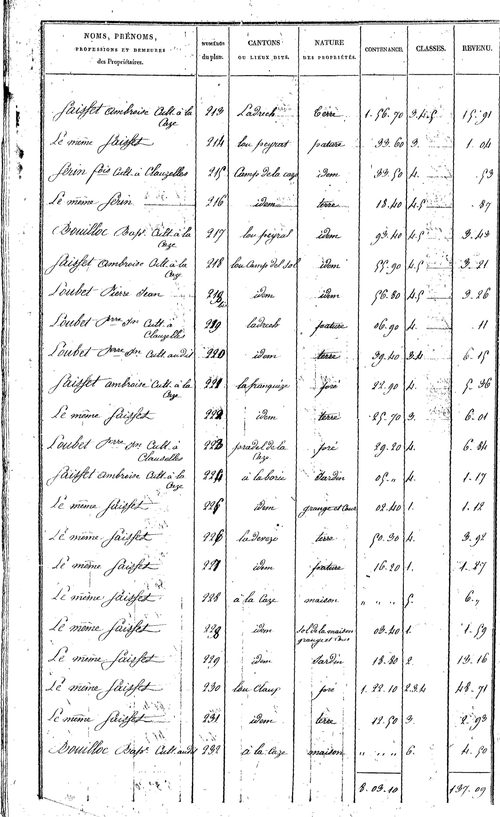 NOMS, PRÉNOMS, PROFESSIONS ET DEMEURES des Propriétaires. NUMÉROS du plan. CANTONS OU LIEUX DITS. NATURE DES PROPRIÉTÉS. CONTENANCE. CLASSES. REVENU.
Saisset ambroise Cult. à la Caze 213 Ladrech terre 1. 56. 70 3. 4. 5 15. 91
Le même Saisset 214 lou peyrat pature 33. 60 3. 1. 04
Serin fois Cult. à Clauzelles 215 Camp de la caze idem 33. 50 4. 53
Le même Serin 216 idem terre 18. 40 4. 5 87
Bouilloc Bapt. Cult. à la Caze 217 lou peyrat idem 93. 40 4. 5 3. 43
Saisset ambroise Cult. à la Caze 218 lou Camp del sol idem 55. 90 4. 5 3. 21
Loubet Pierre Jean 218 idem idem 56. 80 4. 5 3. 26
Loubet Pierre Jn Cult. à Clauzelles 219 ladrech pature 06. 90 4. 11
Loubet Pierre Jn Cult. audit 220 idem terre 39. 40 3. 4 6. 15
Saisset ambroise Cult. à la Caze 221 la franquize pré 22. 90 4. 5. 36
Le même Saisset 222 idem terre 25. 70 3. 6. 01
Loubet Pierre Jn Cult. à Clauselles 223 pradel de la Caze pré 29. 20 4. 6. 84
Saisset ambroise Cult. à la Caze 224 à la borie Jardin 05. „ 4. 1. 17
Le même Saisset 225 idem grange et Cour 02. 40 1. 1. 12
Le même Saisset 226 la deveze terre 50. 30 4. 3. 92
Le même Saisset 227 idem pature 16. 20 1. 1. 27
Le même Saisset 228 à la Caze maison „ „ „ 5. 6. „
Le même Saisset 228 idem sol de la maison grange et Cour 03. 40 1. 1. 59
Le même Saisset 229 idem Jardin 18. 80 2. 13. 16
Le même Saisset 230 lou claux pré 1. 22. 10 2. 3. 4 48. 71
Le même Saisset 231 idem terre 12. 50 3. 2. 93
Bouilloc Bapt. Cult. audit 232 à la Caze maison „ „ „ 6. 4. 50
8. 03. 10 137. 09